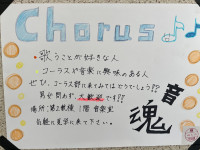 Chorus
・歌うことが好きな人
コーラスや音楽に興味のある人
ぜひ、コーラス部に来てみてはどうでしょう??
男女問わず、大歓迎です!!
場所:第2教棟 3階 音楽室
気軽に見学に来て下さい。
音
魂